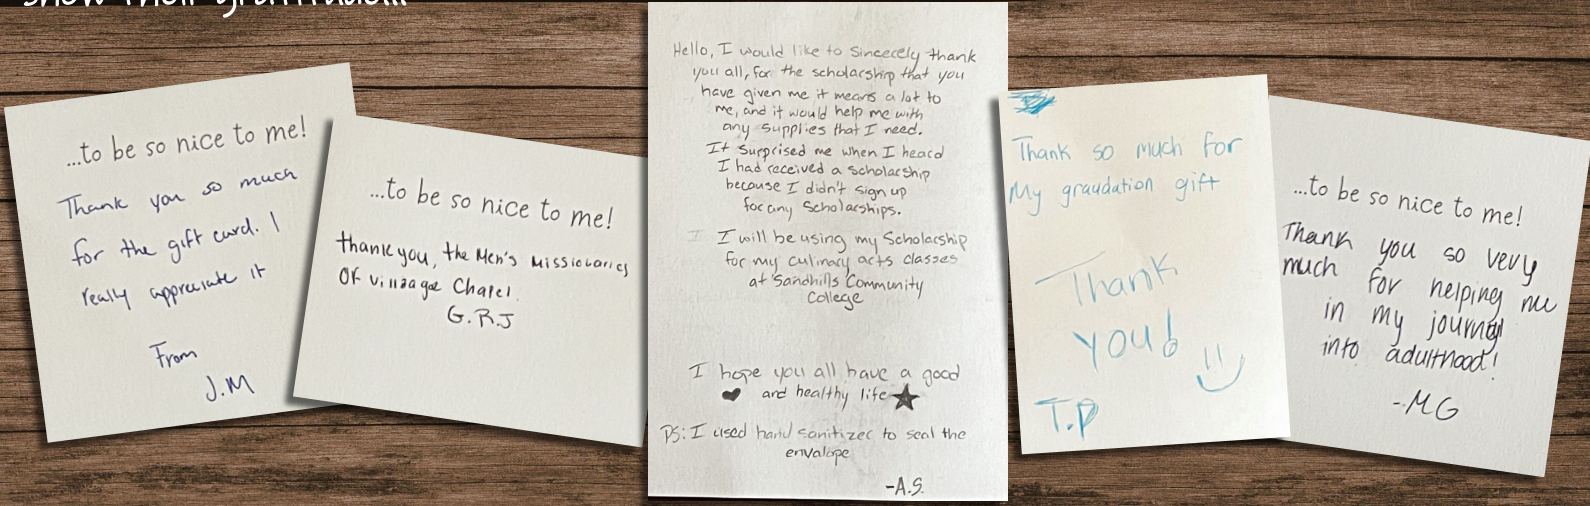 show their gratitude...
...to be so nice to me!
Thank you so much
for the gift card. I
really appreciate it
From
J.M
...to be so nice to me!
thank you, the Men's Missionaries
Of Villaage Chapel.
G.R.J
Hello, I would like to sincerely thank
you all, for the scholarship that you
have given me it means a lot to
me, and it would help me with
any supplies that I need.
It surprised me when I heard
I had received a scholarship
because I didn't sign up
for any scholarships.
I will be using my Scholarship
for my culinary acts classes
at Sandhills Community
College
I hope you all have a good
and healthy life
PS: I used hand sanitizer to seal the
envalope
-A.S.
Thank so much for
My graudation gift
Thank
you!
T.P
...to be so nice to me!
Thank you so very
much for helping me
in my journey
into adulthood!
-MG